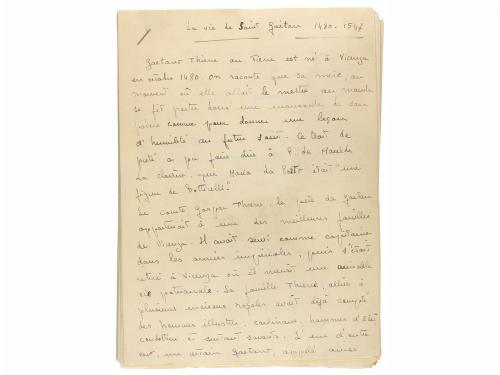 La vie de Saint Gaétan 1480-1547
Gaetano Thiene ou Tiene est né à Vicenza
en octobre 1480. On raconte que sa mère, au
moment où elle allait le mettre au monde
se fit porter dans une mansarde de son
palais comme pour donner une leçon
d'humilité au futur saint. Ce trait de
piété a pu faire dire à R. de Maulde
la Clavière, que Maria da Porto était "une
figure de Botticelli"
Le comte Gaspar Thiene, le père de Gaetan
appartenait à une des meilleures familles
de Vicenza. Il avait servi comme capitaine
dans les armées impériales, puis s'était
retiré à Vicenza où il menait une aimable
vie patriarcale. La famille Thiene, alliée à
plusieurs maisons royales avait déjà compté
des hommes illustres, cardinaux, hommes d'état
condottieri et surtout savants. L'un d'entre
eux, un certain Gaetano, appelé aussi